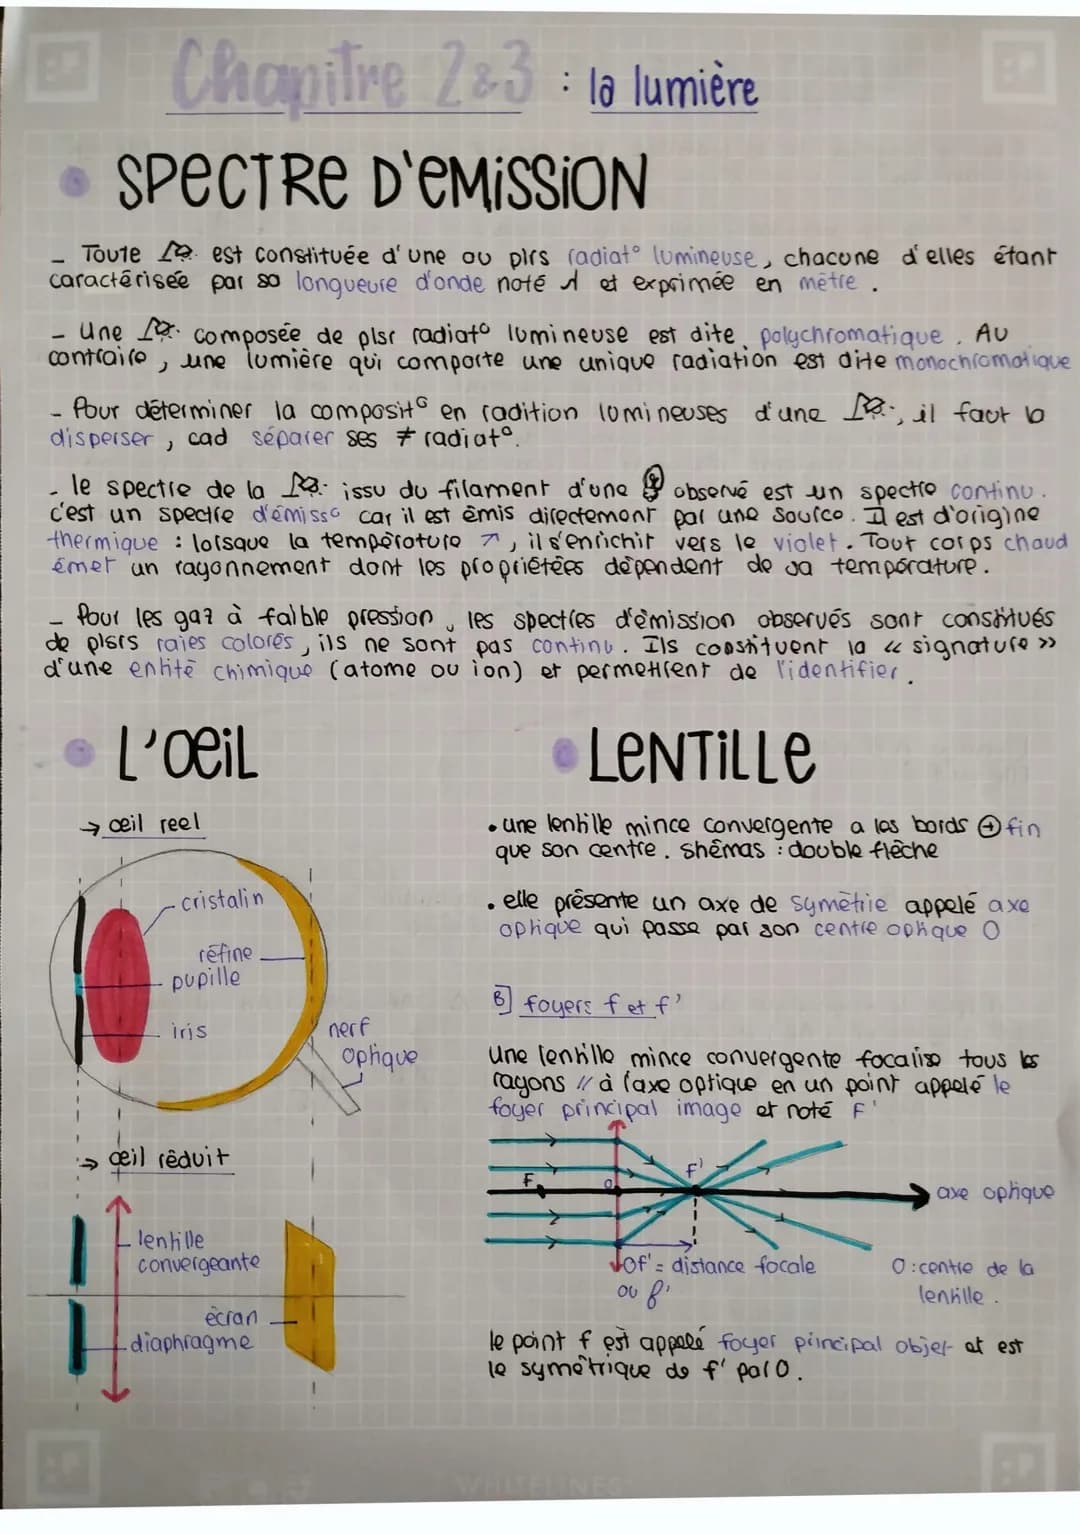 Chapitre 2&3 : la lumière
SPECTRE D'EMISSION
_ Toute est constituée d'une ou plrs radiat° lumineuse, chacune d'elles étant
caractérisée par sa longueure d'onde noté λ et exprimée en mètre.
_ Une composée de plsr radiat° lumineuse est dite polychromatique. Au
contraire, une lumière qui comporte une unique radiation est dite monochromatique
_ Pour déterminer la composit° en radition lumineuses d'une , il faut la
disperser, cad séparer ses ≠ radiat°.
_ le spectre de la issu du filament d'une observé est un spectre continu.
c'est un spectre d'émiss° car il est émis directement par une source. Il est d'origine
thermique : lorsque la température ↗, il s'enrichit vers le violet. Tout corps chaud
émet un rayonnement dont les propriétées dépendent de sa température.
_ Pour les gaz à faible pression, les spectres d'émission observés sont constitués
de plsrs raies colorés, ils ne sont pas continu. Ils constituent la « signature »
d'une entité chimique (atome ou ion) et permettent de l'identifier.
L'OEIL
→ œil reel
cristalin
rétine
pupille
iris
nerf
optique
→ œil réduit
lentille
convergeante
écran
diaphragme
LENTILLE
• une lentille mince convergente a les bords ⊕ fin
que son centre. shémas : double flèche
• elle présente un axe de symétrie appelé axe
optique qui passe par son centre optique O
B] foyers f et f'
Une lentille mince convergente focalise tous les
rayons // à l'axe optique en un point appelé le
foyer principal image et noté F'
F
O
F'
axe optique
Of' = distance focale
ou f'
O : centre de la
lentille.
le point f est appelé foyer principal objet et est
le symétrique de f' par O.
WHITELINES